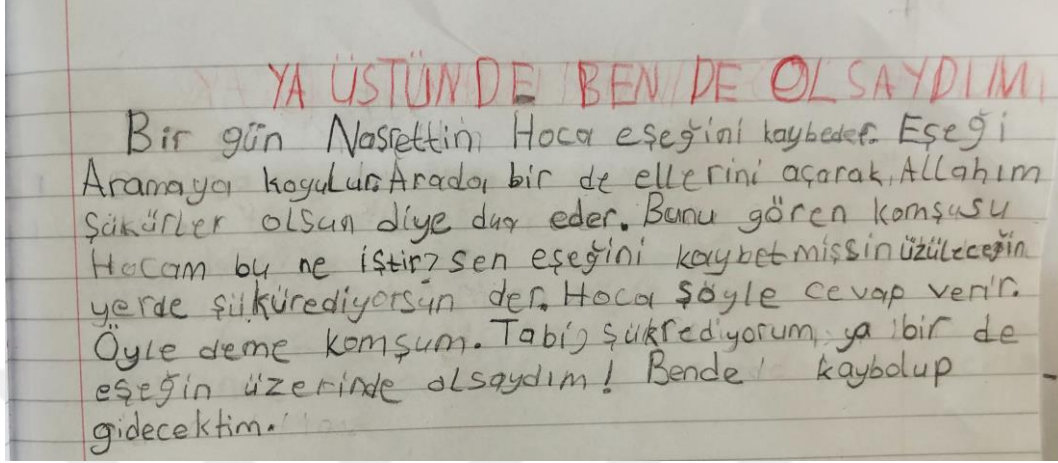 YA ÜSTÜNDE BEN DE OLSAYDIM
Bir gün Nasrettin Hoca eşeğini kaybeder. Eşeği
Aramaya koyulur. Arada bir de ellerini açarak, Allahım
şükürler olsun diye dua eder. Bunu gören komşusu
Hocam bu ne iştir? sen eşeğini kaybetmişsin üzüleceğin
yerde şükürediyorsun der. Hoca şöyle cevap verir.
Öyle deme komşum. Tabi, şükrediyorum, ya bir de
eşeğin üzerinde olsaydım! Bende kaybolup
gidecektim.